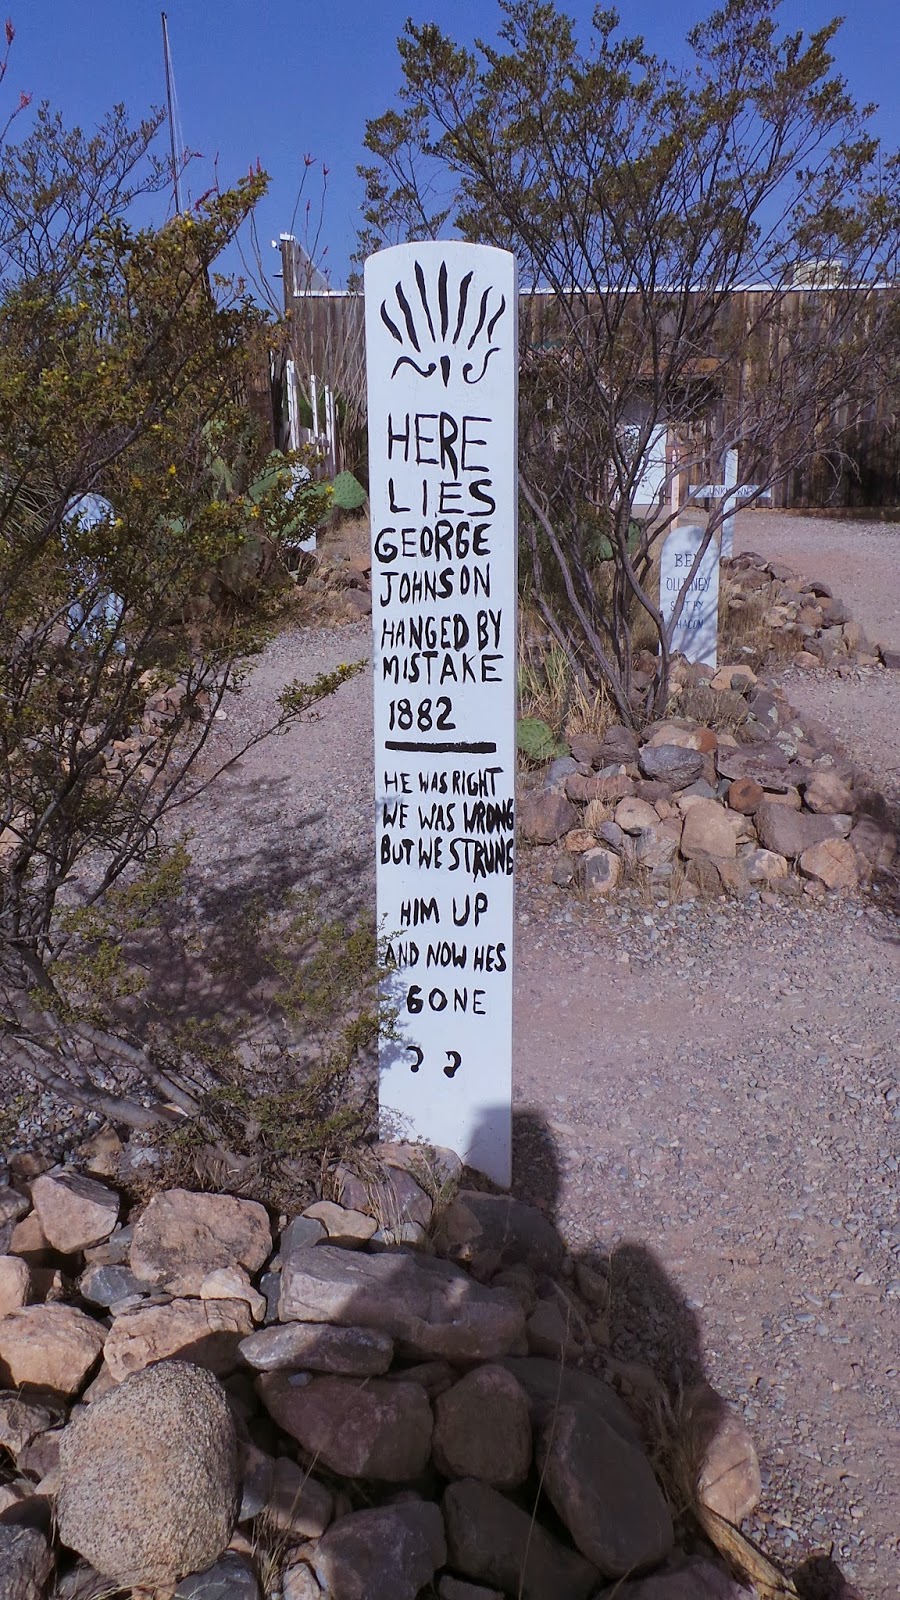 HERE
LIES
GEORGE
JOHNSON
HANGED BY
MISTAKE
1882
HE WAS RIGHT
WE WAS WRONG
BUT WE STRUNG
HIM UP
AND NOW HES
GONE
UNKNOWN
SHOT BY